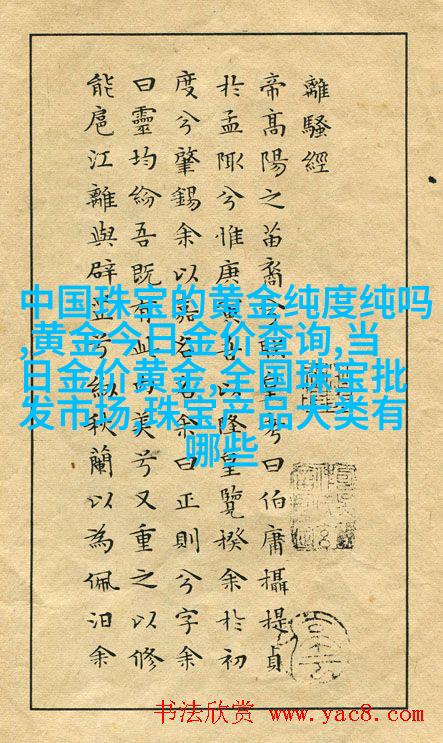 離騷經
帝高陽之苗裔兮朕皇考曰伯庸攝提貞
於孟陬兮惟庚寅吾以降皇覽揆余於初
度兮肇錫余以嘉名名余曰正則兮字余
曰靈均紛吾既有此內美兮又重之以修
能扈江離與辟芷兮紉秋蘭以為佩汩余
中国珠宝的黄金纯度纯吗
,黄金今日金价查询,当
日金价黄金,全国珠宝批
发市场,珠宝产品大类有
哪些
书法欣赏 www.yac8.com